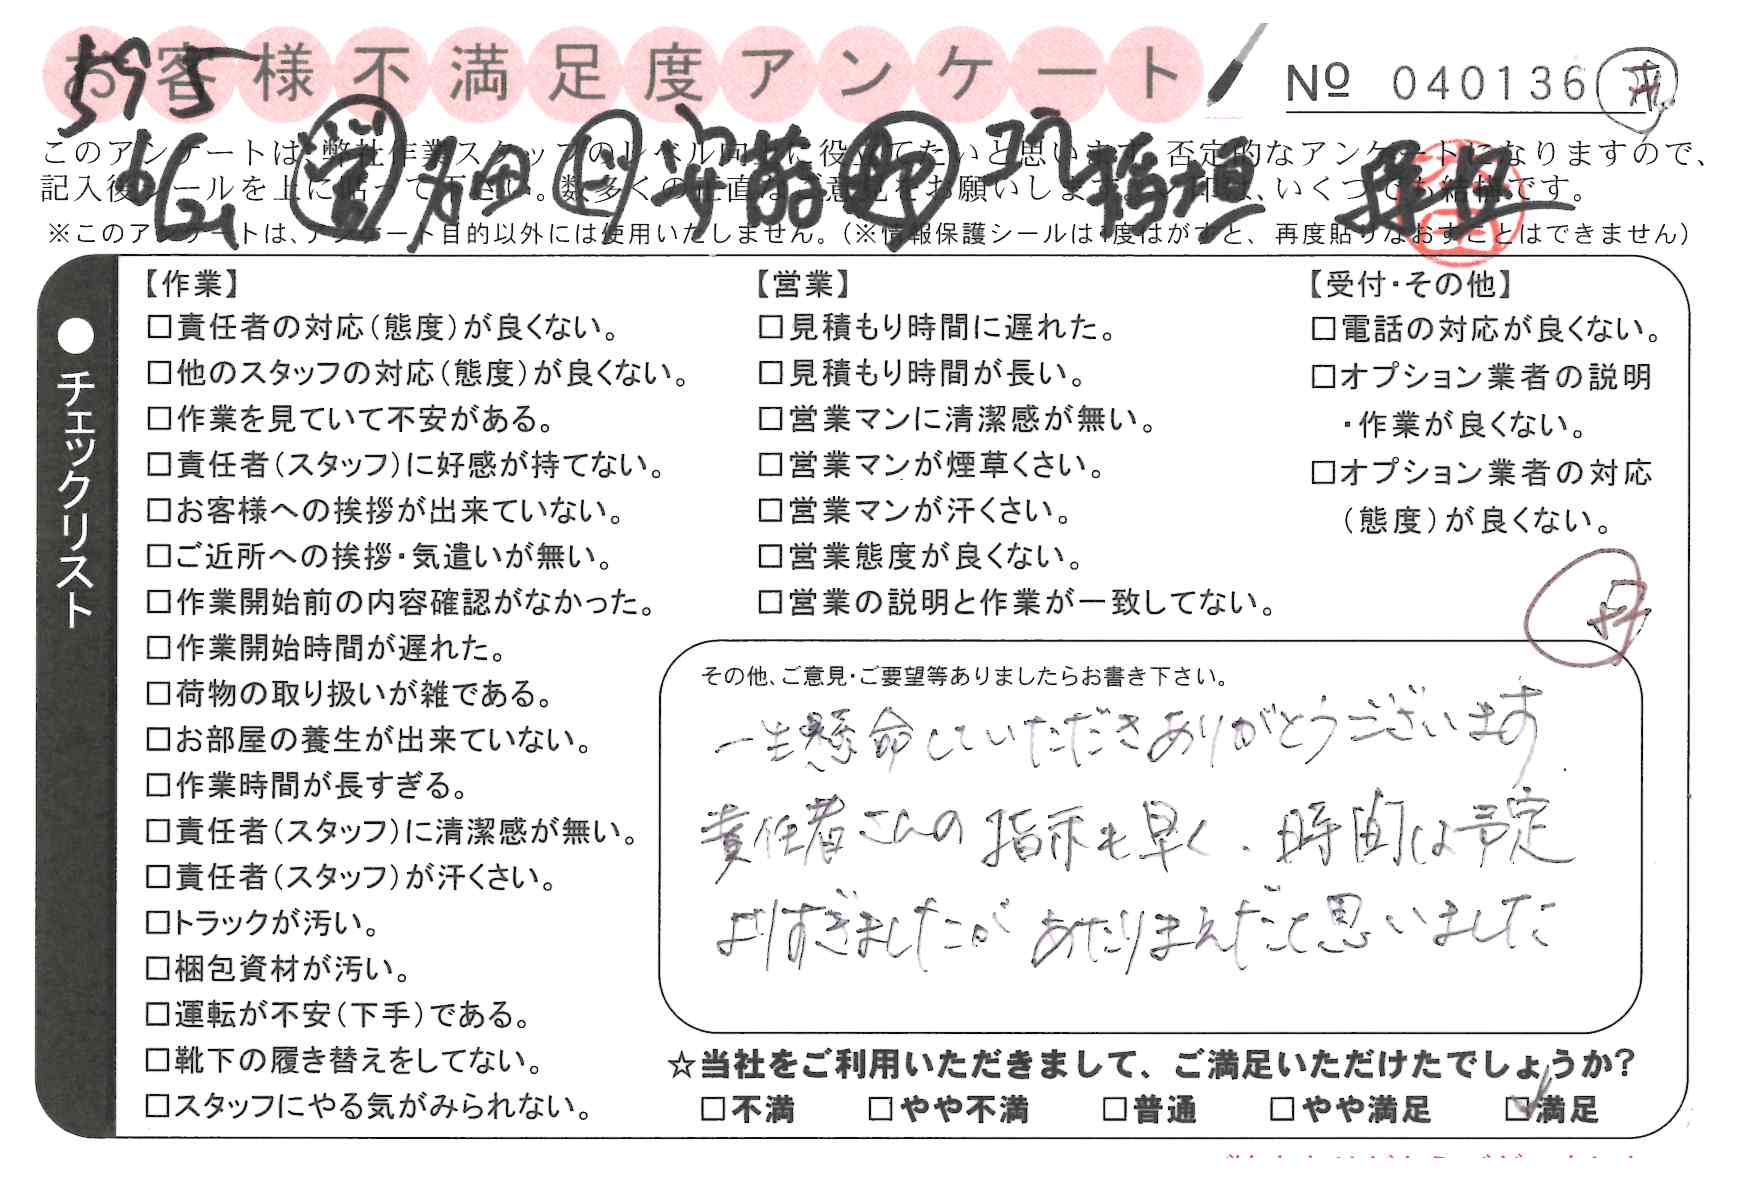 お客様不満足度アンケート
№ 040136
595
このアンケートは、弊社作業スタッフのレベル向上に役立てたいと思います。否定的なアンケートになりますので、
記入後シールを上に貼って下さい。数多くの正直なご意見をお願いします。いくつでも結構です。
※このアンケートは、アンケート目的以外には使用いたしません。(※情報保護シールは1度はがすと、再度貼りなおすことはできません)
●チェックリスト
【作業】
□責任者の対応(態度)が良くない。
□他のスタッフの対応(態度)が良くない。
□作業を見ていて不安がある。
□責任者(スタッフ)に好感が持てない。
□お客様への挨拶が出来ていない。
□ご近所への挨拶・気遣いが無い。
□作業開始前の内容確認がなかった。
□作業開始時間が遅れた。
□荷物の取り扱いが雑である。
□お部屋の養生が出来ていない。
□作業時間が長すぎる。
□責任者(スタッフ)に清潔感が無い。
□責任者(スタッフ)が汗くさい。
□トラックが汚い。
□梱包資材が汚い。
□運転が不安(下手)である。
□靴下の履き替えをしてない。
□スタッフにやる気がみられない。
【営業】
□見積もり時間に遅れた。
□見積もり時間が長い。
□営業マンに清潔感が無い。
□営業マンが煙草くさい。
□営業マンが汗くさい。
□営業態度が良くない。
□営業の説明と作業が一致してない。
【受付・その他】
□電話の対応が良くない。
□オプション業者の説明
・作業が良くない。
□オプション業者の対応
(態度)が良くない。
その他、ご意見・ご要望等ありましたらお書き下さい。
一生懸命していただきありがとうございます
責任者さんの指示も早く、時間は予定
よりすぎましたが あたりまえだと思いました
☆当社をご利用いただきまして、ご満足いただけたでしょうか?
□不満 □やや不満 □普通 □やや満足 ☑満足